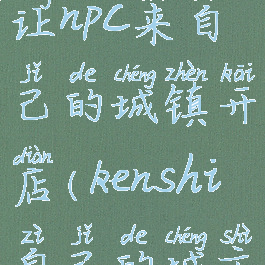 让npc来自
jǐ de chéng zhèn kāi
己的城镇开
diàn
店(kenshi
zì jǐ de chéng shì
自己的城市